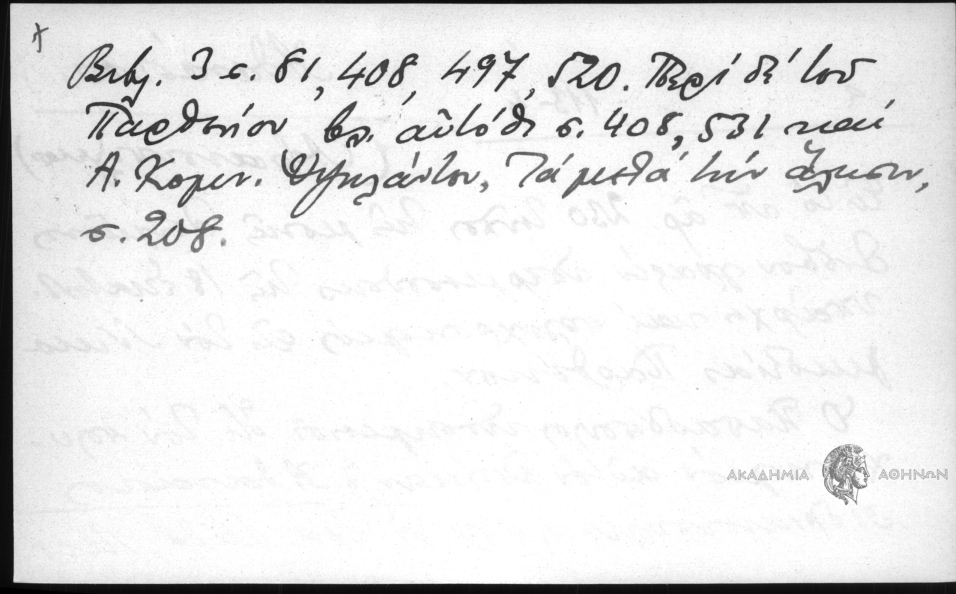 Βιβλ. 3 σ. 81, 408, 497, 520. Περί δέ τοῦ
Παρθενίου βλ. αὐτόθι σ. 408, 531 καί
Α. Κομν. Ὑψηλάντου, Τά μετά τήν ἅλωσιν,
σ. 208.
ΑΚΑΔΗΜΙΑ ΑΘΗΝΩΝ